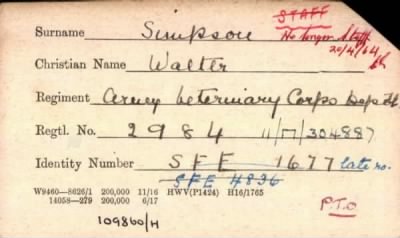 STAFF
No longer Staff
20/4/64
Surname Simpson
Christian Name Walter
Regiment Army Veterinary Corps Dep
Regtl. No. 2984 11/17/304887
Identity Number SFE 1677 late no.
SFE 4836
W9460—8626/1 200,000 11/16 HWV(P1424) H16/1765
14058—279 200,000 6/17
P.T.O
109860/H